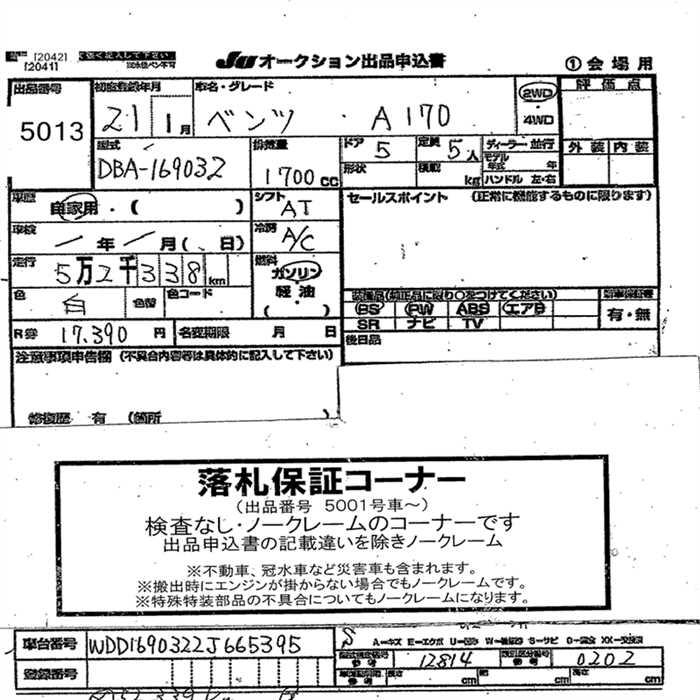 [2042]
[2041]
JU オークション出品申込書
①会場用
出品番号
5013
初度登録年月
21 1月
車名・グレード
ベンツ A170
2WD
4WD
評価点
型式
DBA-169032
排気量
1700cc
ドア
5
定員
5人
形状
積載
kg
ディーラー・並行
モデル年式 年
ハンドル 左・右
外装 内装
車歴
自家用・( )
シフト
AT
セールスポイント (正常に機能するものに限ります)
車検
年 月( 日)
冷房
A/C
走行
5万2千338km
燃料
ガソリン
軽油
( )
色
白
色替
色コード
装備品(純正品に限り○をつけてください)
PS PW ABS エアB
SR ナビ TV
新車保証書
有・無
R券
17.390円
名変期限 月 日
後日品
注意事項申告欄 (不具合内容等は具体的に記入して下さい)
修復歴 有 (箇所 )
落札保証コーナー
(出品番号 5001号車~)
検査なし・ノークレームのコーナーです
出品申込書の記載違いを除きノークレーム
※不動車、冠水車など災害車も含まれます。
※搬出時にエンジンが掛からない場合でもノークレームです。
※特殊特装部品の不具合についてもノークレームになります。
車台番号
WDD1690322J665395
A-キズ E-エクボ U-凹み W-補修跡 S-サビ C-腐食 XX-交換済
型式指定番号
参考
12814
類別区分番号
参考
0202
登録番号
参考
長さ cm 幅 cm 高さ cm